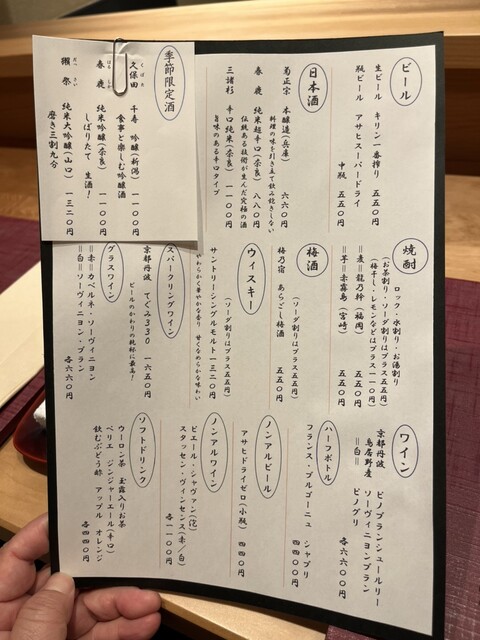 ビール
生ビール キリン一番搾り 五五〇円
瓶ビール アサヒスーパードライ
中瓶 五五〇円
日本酒
菊正宗 本醸造(兵庫) 六六〇円
料理の味を引き立て飲み飽きしない
春鹿 純米超辛口(奈良) 八八〇円
伝統ある技術が生んだ究極の酒
三諸杉 辛口純米(奈良) 一一〇〇円
旨味のある辛口タイプ
季節限定酒
久保田 千寿 吟醸(新潟) 一一〇〇円
くぼた
食事と楽しむ吟醸酒
春鹿 純米吟醸(奈良) 一一〇〇円
はるしか
しぼりたて 生酒!
獺祭 純米大吟醸(山口) 一三二〇円
だっさい
磨き三割九分
焼酎
ロック・水割り・お湯割り
(お茶割り・ソーダ割りはプラス五五円)
(梅干し・レモンなどはプラス一一〇円)
=麦=龍乃幹(福岡) 五五〇円
=芋=赤霧島(宮崎) 五五〇円
梅酒
(ソーダ割りはプラス五五円)
梅乃宿 あらごし梅酒 五五〇円
ウィスキー
(ソーダ割りはプラス五五円)
サントリーシングルモルト 一三二〇円
やわらかく華やかな香り 甘くなめらかな味わい
スパークリングワイン
京都丹波 てぐみ330 一六五〇円
ビールのかわりの乾杯に最高!
グラスワイン
=赤=カベルネ・ソーヴィニヨン
=白=ソーヴィニヨン・ブラン
各六六〇円
ワイン
京都丹波 ピノブランシュールリー
鳥居野産 ソーヴィニヨンブラン
=白= ピノグリ
各六六〇〇円
ハーフボトル
フランス・ブルゴーニュ シャブリ
四四〇〇円
ノンアルビール
アサヒドライゼロ(小瓶) 四四〇円
ノンアルワイン
ピエール・シャヴァン(泡)
スタッセン・ヴィンセンス(赤/白)
各一一〇〇円
ソフトドリンク
ウーロン茶 玉露入りお茶
ペリエ ジンジャーエール(辛口)
飲むぶどう酢 アップル オレンジ
各四四〇円